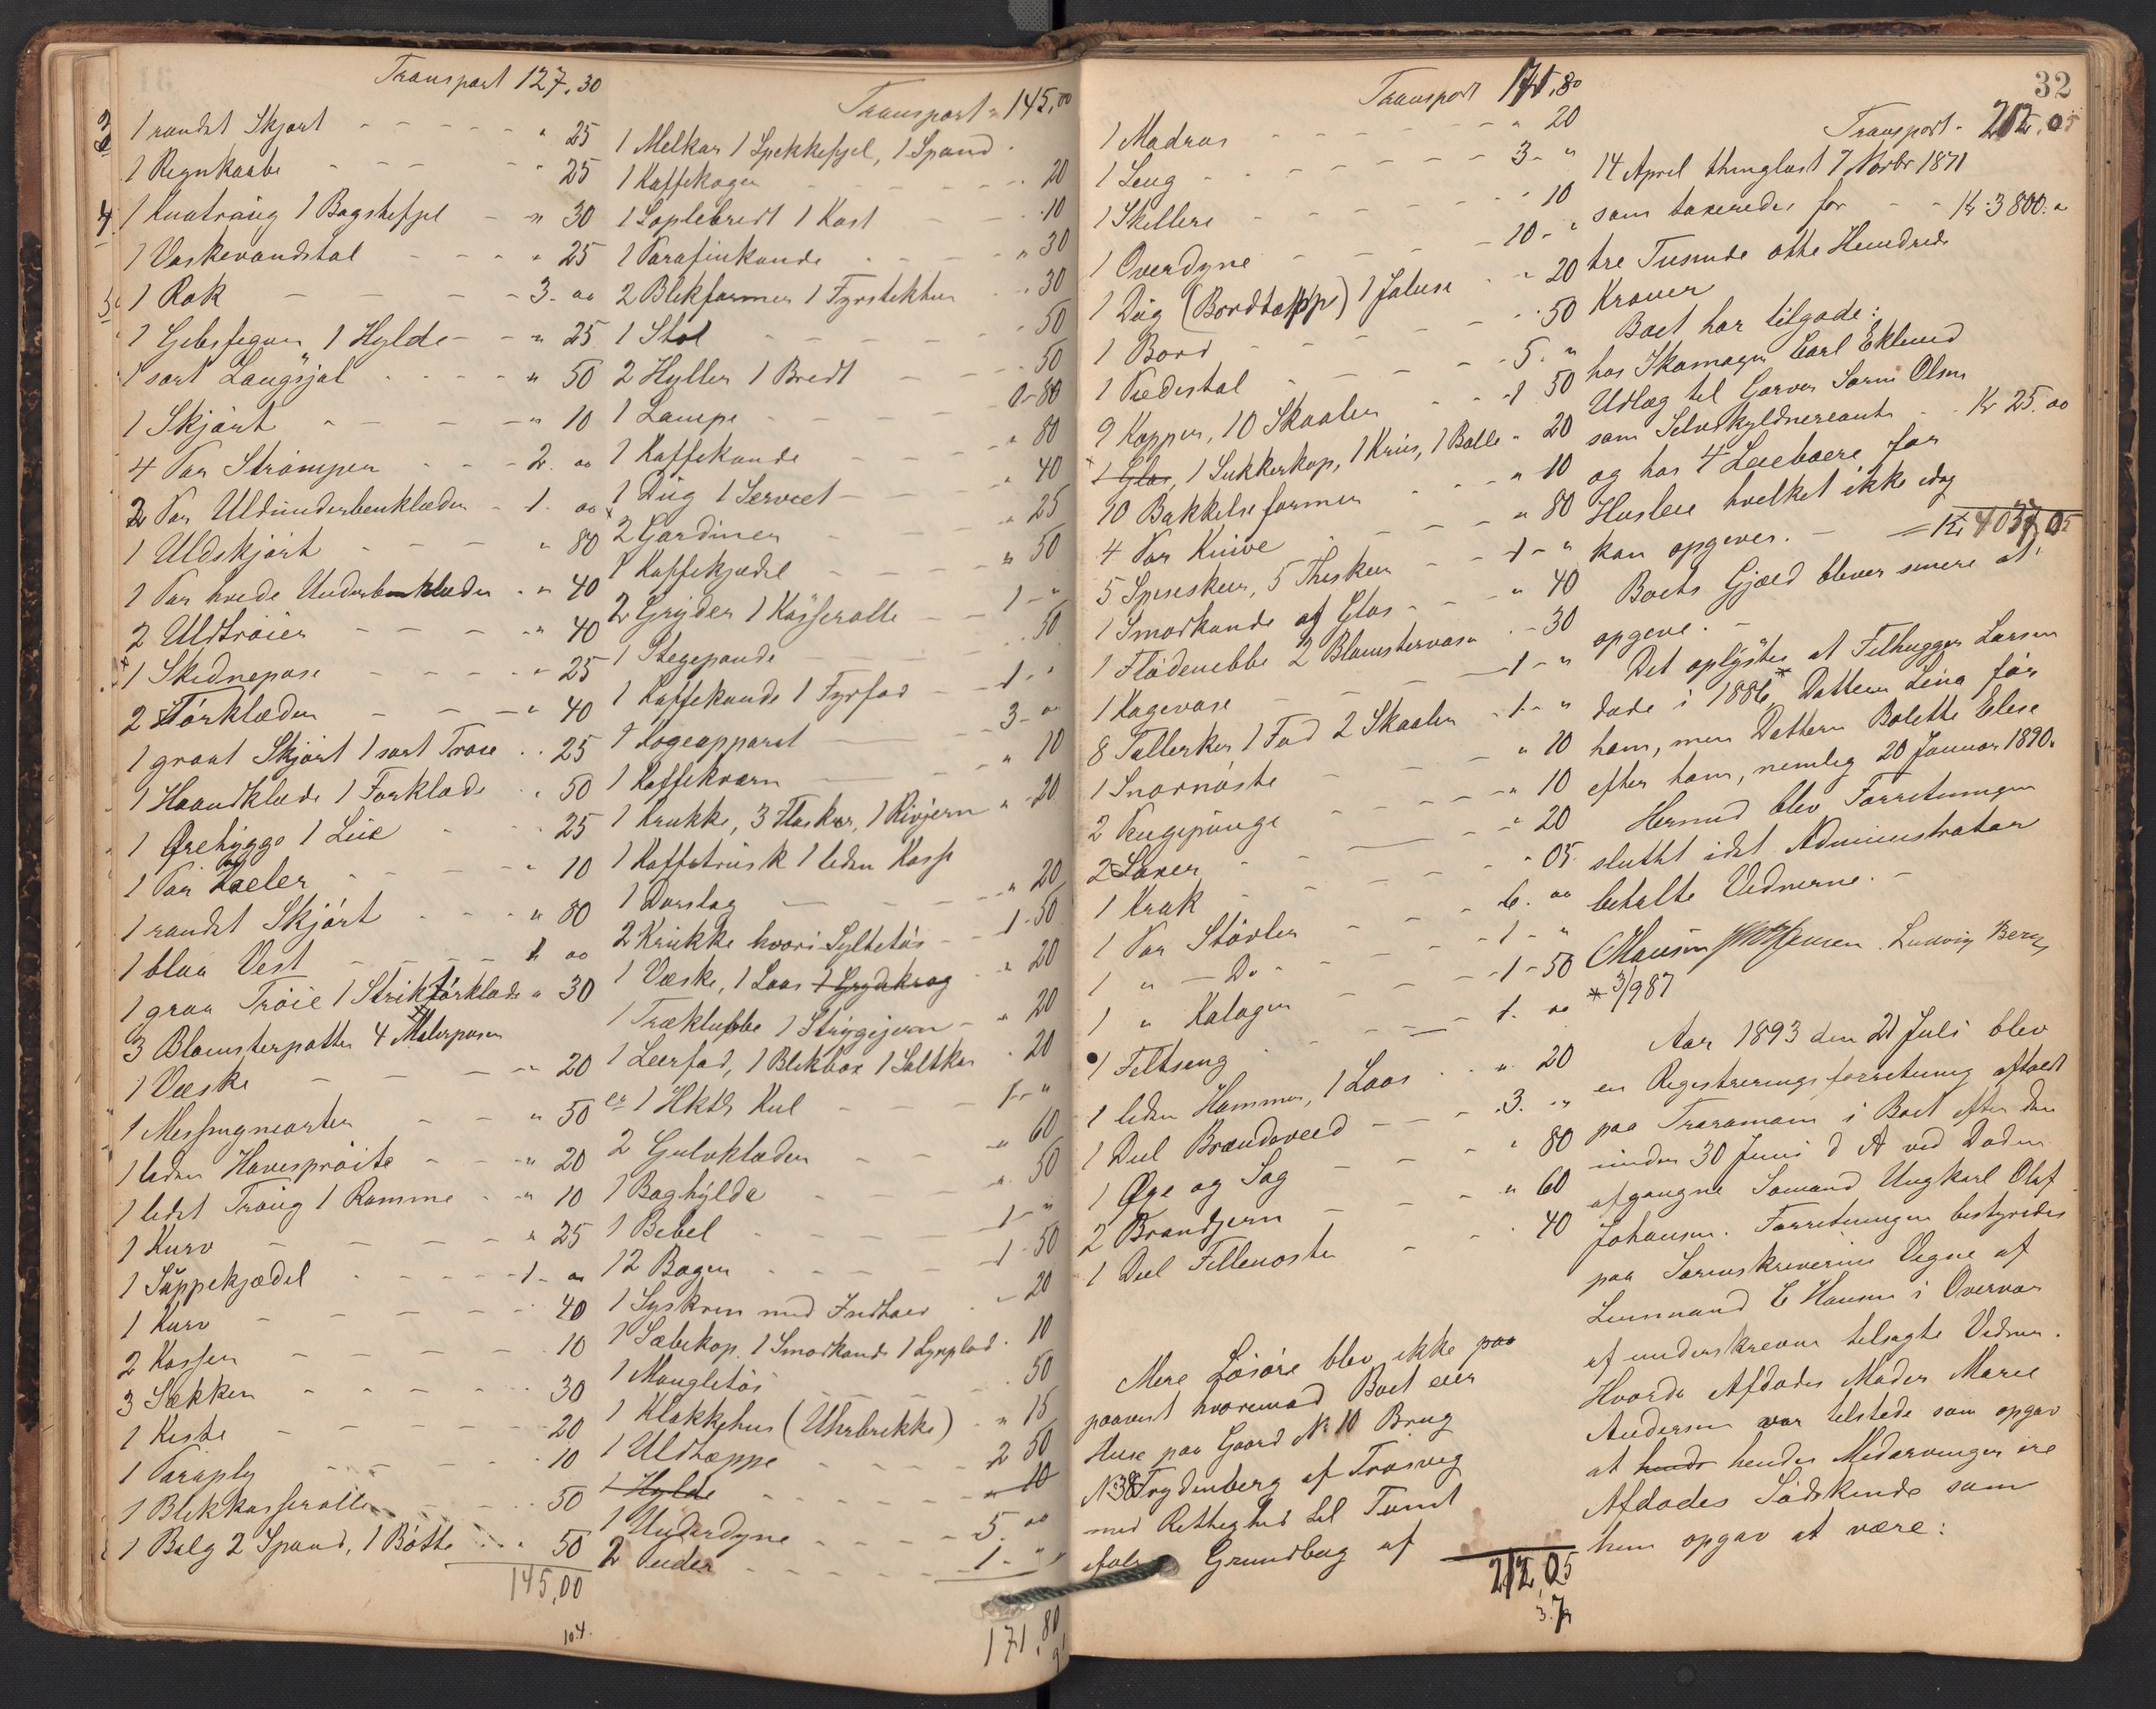 Transport 127,30
1 randet Skjørt - - - - - " 25
1 Regnkaabe - - - " 25
1 Knatraug 1 Bagstefjel - " 30
1 Vaskevandstol - - - " 25
1 Rok - - - - 3. 00
1 Gibsfigur 1 Hylde - - " 25
1 sort Langsjal - - - " 50
1 Skjørt - - - - " 10
4 Par Strømper - - - 2. 00
2 Par Uldunderbenklæder - 1. 00
1 Uldskjørt - - - - " 80
1 Par hvede Underbenklæder - " 40
2 Uldtrøier - - - - " 40
1 Skednepose - - - - " 25
2 Tørklæder - - - " 40
1 graat Skjørt 1 sort Trøie - - 25
1 Haandklæde 1 Forklæde - 50
1 Ørehygge 1 Lue - - - 25
1 Par Læler - - - - " 10
1 randet Skjørt - - - " 80
1 blaa Vest - - - - 1 00
1 graa Trøie 1 Striktørklæde " 30
3 Blomsterpotter 4 Malerposer
1 Væske - - - - " 20
1 Messingmorter - - " 50
1 leden Havesprøite - - " 20
1 ledet Traug 1 Ramme - - " 10
1 Kurv - - - - - " 25
1 Suppekjædel - - - - 1. 00
1 Kurv - - - - - 40
2 Kasser - - - - - 10
3 Sækker - - - - - 30
1 Kiste - - - - - 20
1 Paraply - - - - 10
1 Blikkasserolle - - - 50
1 Balg 2 Spand, 1 Bøtte - - " 50
145,00
104.
Transport " 145,00
1 Melkar 1 Spekkefjel, 1 Spand -
1 Kaffekoger - - - - - 20
1 Soplebredt 1 Kost - - - 10
1 Parafinkande - - - - " 30
2 Blikformer 1 Fyrstikhus - - 30
1 Stol - - - - - - 50
2 Hyller 1 Bredt - - - 50
1 Lampe - - - - - 0-80
1 Kaffekande - - - - " 80
1 Dug 1 Serviet - - - " 40
2 Gardiner - - - - " 25
1 Kaffekjædel - - - - " 50
2 Gryder 1 Kasserolle - - 1 - "
1 Stegepande - - - 50
1 Kaffekande 1 Fyrfad - - 1 - "
1 Kogeapparat - - 3 - 00
1 Kaffekværn - - - " 10
1 Krukke, 3 Flasker, 1 Rivjern " 20
1 Kaffetrusk 1 leden Kasse
1 Dørslag - - - - " 20
2 Krukke hvori Syltetøi - - 1-50
1 Væske, 1 Laas 1 Grydekrog - " 20
1 Træklubbe 1 Strygejern - " 20
1 Leerfad, 1 Blikbox 1 Saltkar - 20
1 Hkts Kul - - - - 1 - "
2 Gulvklæder - - - " 60
1 Boghylde - - - - " 50
1 Bibel - - - - - 1 - "
12 Bøger - - - - 1-50
1 Syskrin med Indhold - - 20
1 Sæbekop. 1 Smørkande 1 Lysplad. 10
1 Mangletøi - - - - 50
1 Klokkehus (Uhrbrikke) - " 15
1 Uldtæppe - - - - 2 50
1 Hylde - - - - - " 10
1 Underdyne - - - - 5. 00
2 Puder - - - - - 1 - "
171,80
32
Transport 171,80
1 Madras - - - - - - " 20
1 Seng - - - - - - 3 - "
1 Skilleri - - - - - - 10
1 Overdyne - - - - 10 - "
1 Dug (Bordtæppe) 1 Jalusi - " 20
1 Bord - - - - - - 50
1 Piedestal - - - - - 5. "
9 Kopper, 10 Skaaler - - - 1 50
1 Glas, 1 Sukkerkop, 1 Krus, 1 Bolle " 20
10 Bakkelseformer - - " 10
4 Par Knive - - - - " 80
5 Spiseskeer, 5 Theskeer - - 1 - "
1 Smørkande af Glas - - - " 40
1 Flødenebbe 2 Blomstervaser - - 30
1 Kagevase - - - - - 1 - "
8 Tallerker 1 Fad 2 Skaaler - 1 - "
1 Snørnøste - - - - " 10
2 Pengepunge - - - - " 10
2 Saxer - - - - " 20
1 Krak - - - - - " 05
1 Par Støvler - - - - 6. 00
1 " - Do - - - - - 1 - "
1 " Kalager - - - - 1-50
1 Feltseng - - - - 1. 00
1 leden Hammer, 1 Laas - - " 20
1 Deel Brændeveed - - - 3. "
1 Øxe og Sag - - - - " 80
2 Brandjern - - - - " 60
1 Deel Filleroster - - - 40
Mere Løsøre blev ikke paa
paavist hvorimod Boet eier
Huse paa Gaard No 10 Brug
No 38 Frydenberg af Trosvig
med Rettighed til Tomt
ifølge Grundbog af
212,05
Transport - 212,05
14 April thinglæst 7 Novbr 1871
som taxeredes for - - Kr 3800. "
tre Tusinde otte Hundrede
Kroner
Boet har tilgode:
hos Skomager Carl Eklund
Udlæg til Garver Søren Olsen
som Selvskyldnercaution - - Kr 25.00
og hos 4 Leieboere for
Husleie hvilket ikke idag
kan opgives. - = Kr 4037,05
Boets Gjæld bliver senere at
opgive. -
Det oplystes at Filhugger Larsen
døde i 1886*, Datteren Lina før
ham, men Datteren Bolette Elise
efter ham, nemlig 20 Januar 1890.
Hermed blev Forretningen
sluttet idet Administrator
betalte Vidnerne. -
CHansen JMJensen. Ludvig Berg
* 3/9 87
Aar 1893 den 21 Juli blev
en Registreringsforretning afholdt
paa Traramoen i Boet efter den
under 30 Juni d A ved Døden
afgangne Sømand Ungkarl Olaf
Johansen. Forretningen bestyredes
paa Sorenskriverens Vegne af
Lensmand C Hansen i Overvær
af underskrevne tilsagte Vidner.
Hvorda Afdødes Moder Marie
Andersen var tilstede som opgav
at hende hendes Medarvinger ere
Afdødes Sødskende som
hun opgav at være: